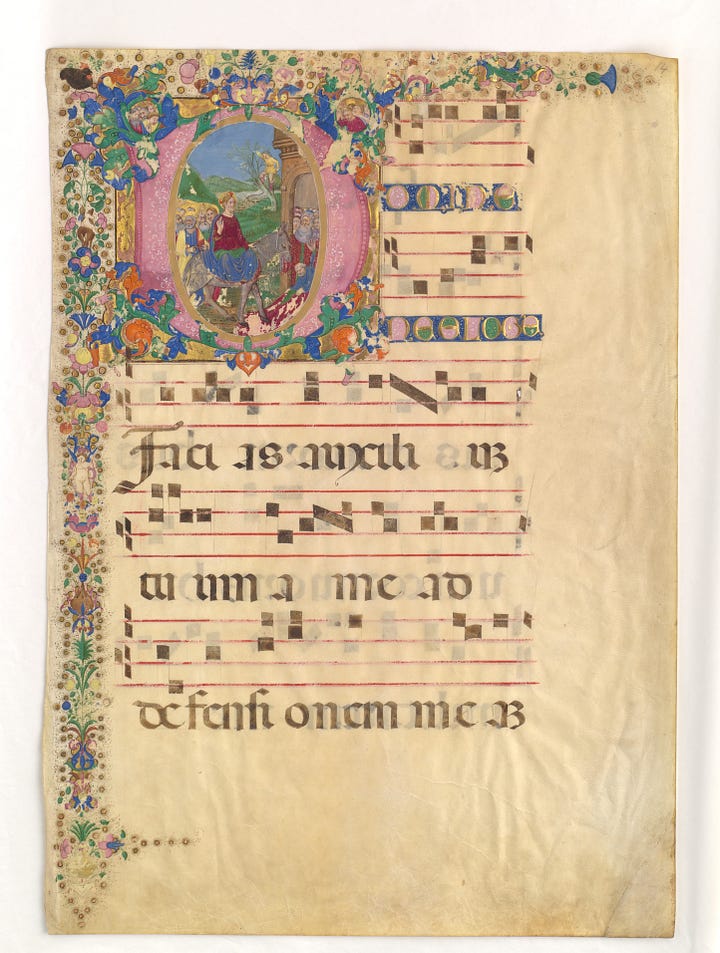 DOMINE
NE LONGE
Faci as auxili um
tu um a me ad
defensi onem me am